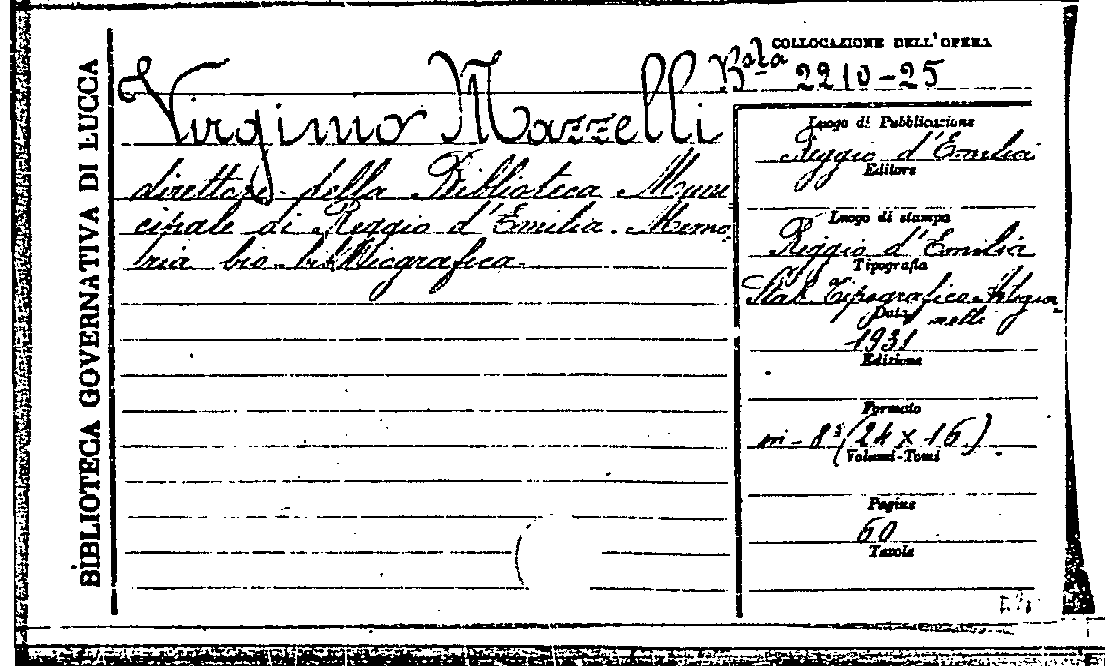 BIBLIOTECA GOVERNATIVA DI LUCCA
Virginio Mazzelli
direttore della Biblioteca Muni
cipale di Reggio d'Emilia. Memo
ria bio-bibliografica.
COLLOCAZIONE DELL'OPERA
Bta 2210-25
Luogo di Pubblicazione
Reggio d'Emilia
Editore
Luogo di stampa
Reggio d'Emilia
Tipografia
Stab. Tipografico
Data
1931
Edizione
Formato
in-8° (24 x 16)
Volumi-Tomi
Pagine
60
Tavole